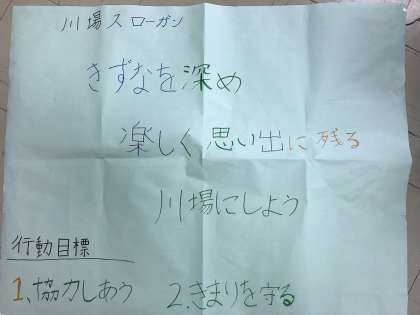 川場スローガン
きずなを深め
楽しく思い出に残る
川場にしよう
行動目標
1、協力しあう
2、きまりを守る